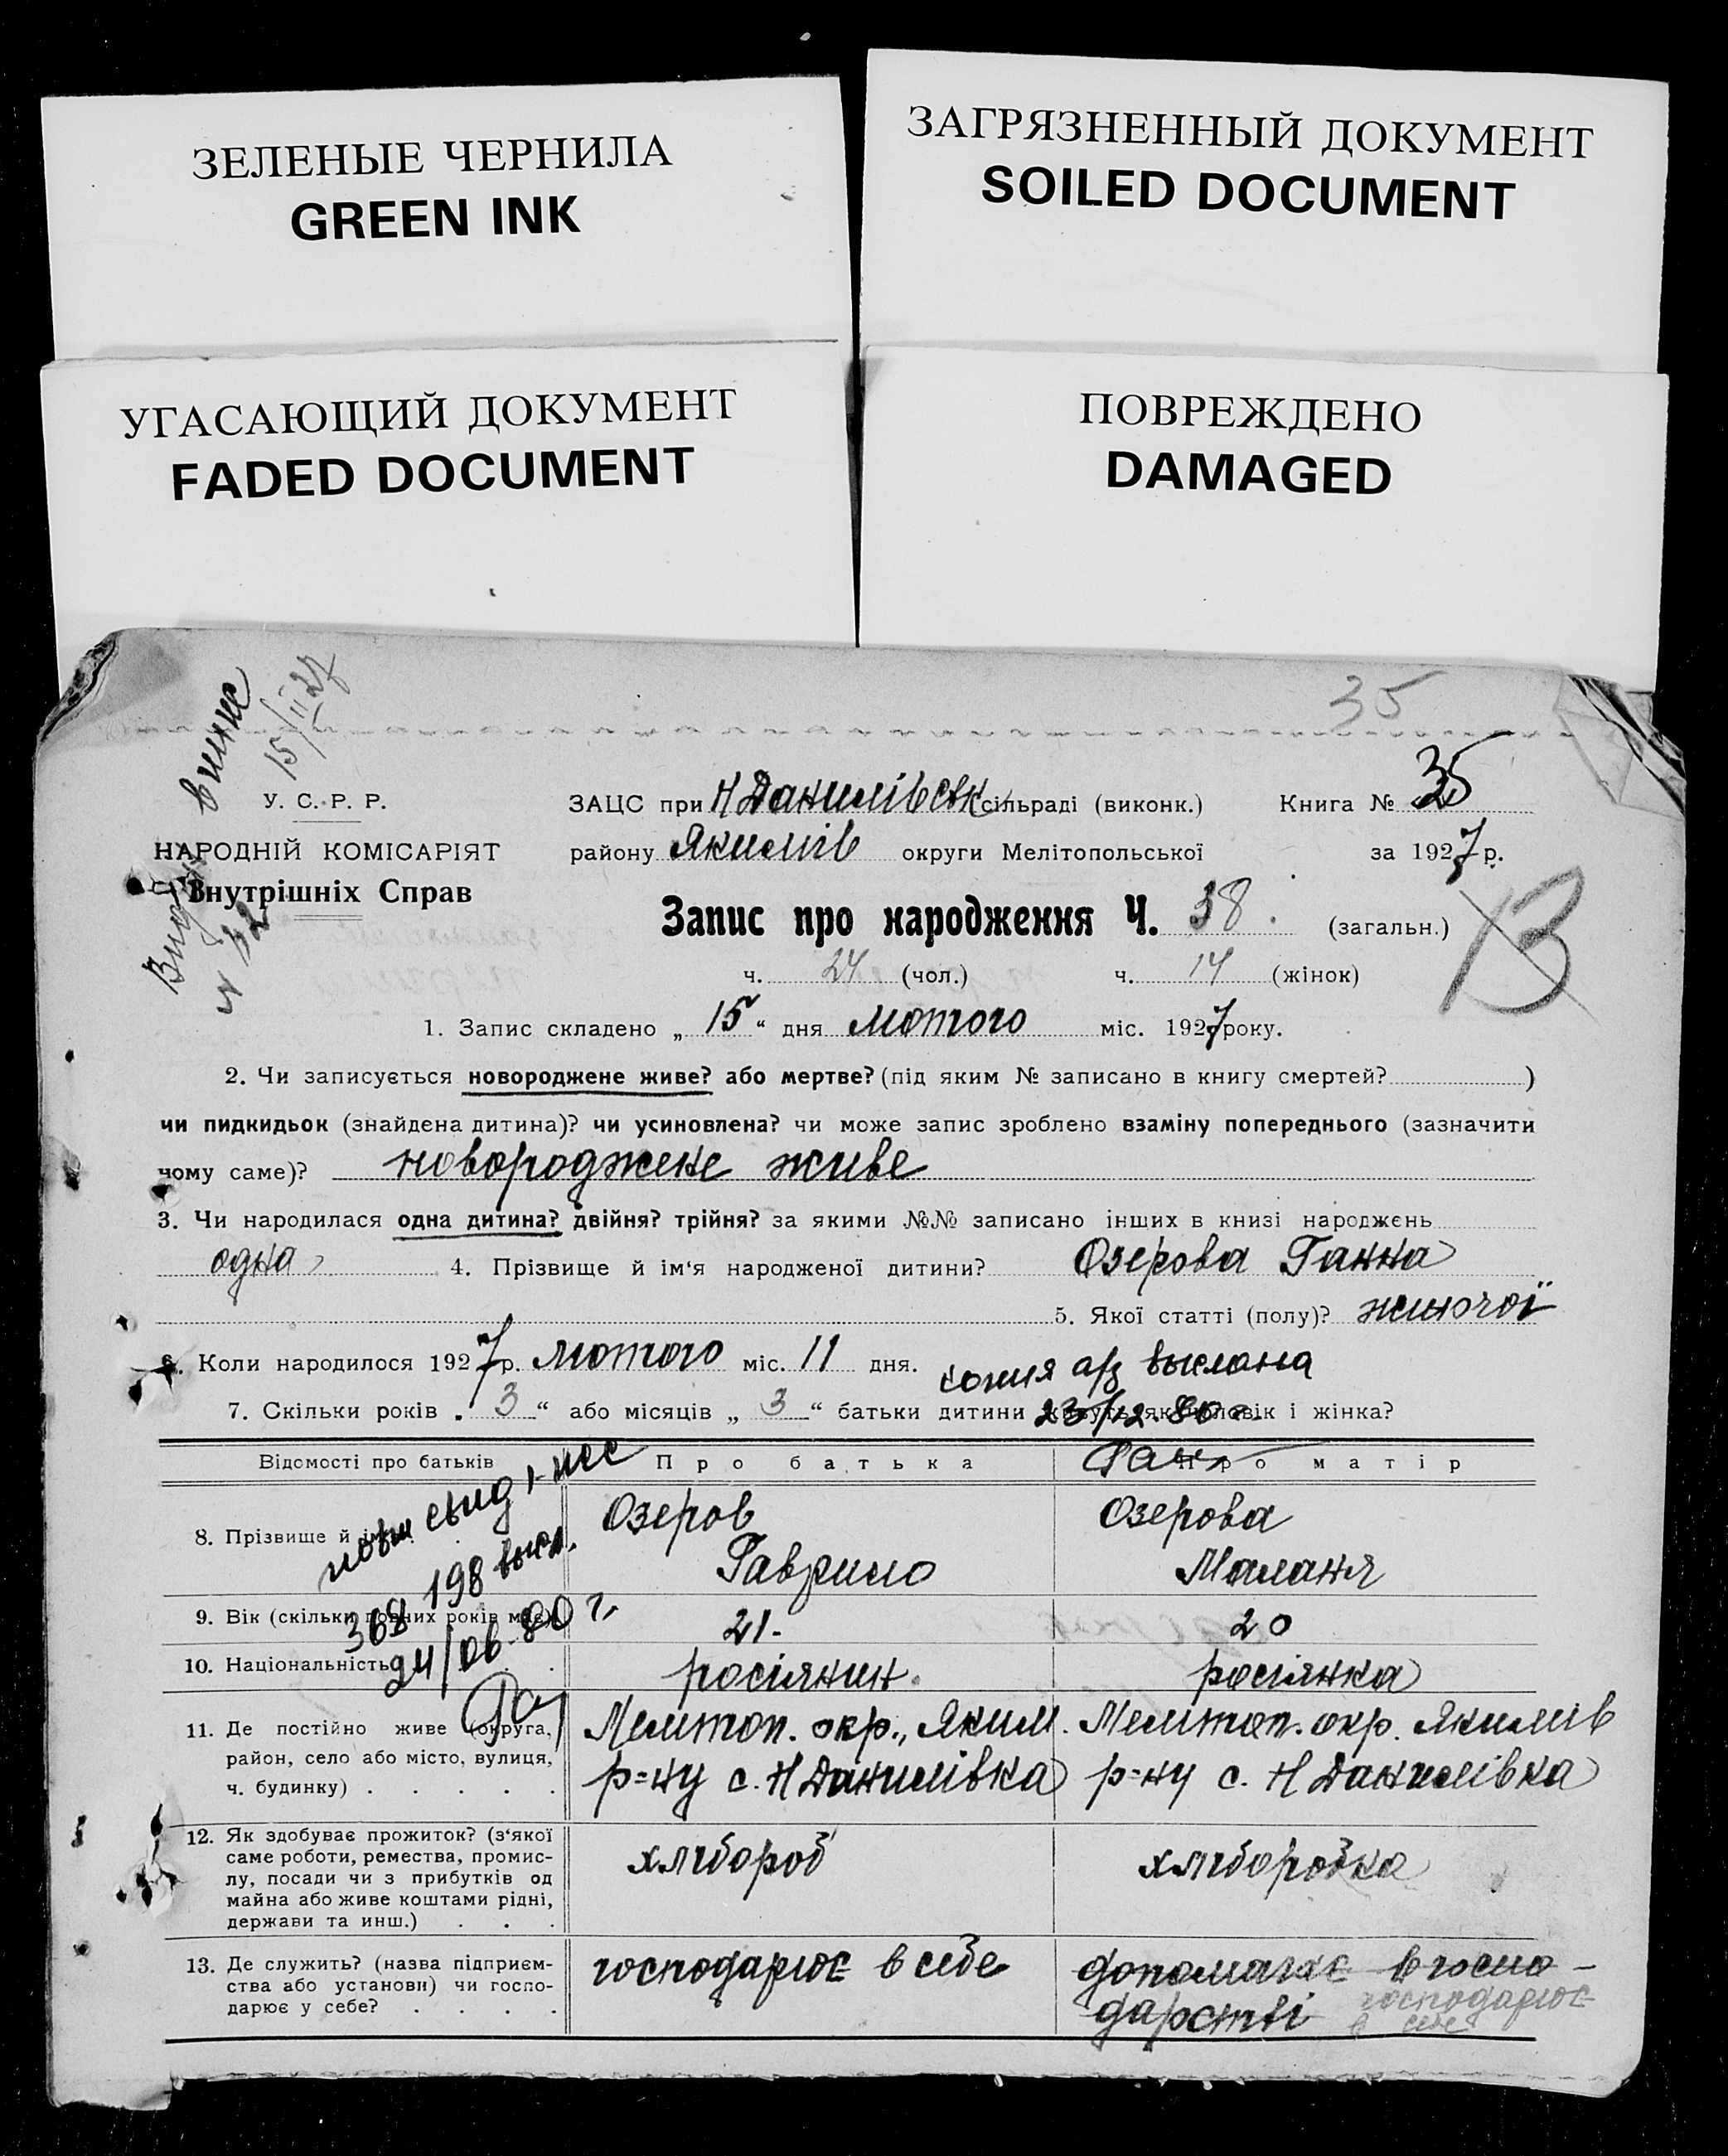 ЗЕЛЕНЫЕ ЧЕРНИЛА
GREEN INK
ЗАГРЯЗНЕННЫЙ ДОКУМЕНТ
SOILED DOCUMENT
УГАСАЮЩИЙ ДОКУМЕНТ
FADED DOCUMENT
ПОВРЕЖДЕНО
DAMAGED
35
15/II 27
У. С. Р. Р.
НАРОДНІЙ КОМІСАРІЯТ
Внутрішніх Справ
ЗАЦС при Н Данилівськ сільраді (виконк.) Книга № 35
району Якимів округи Мелітопольської за 1927 р.
Запис про народження Ч. 38. (загальн.)
13
ч. 24 (чол.) ч. 14 (жінок)
1. Запис складено „ 15 “ дня лютого міс. 1927 року.
2. Чи записується новороджене живе? або мертве? (під яким № записано в книгу смертей? )
чи пидкидьок (знайдена дитина)? чи усиновлена? чи може запис зроблено взаміну попереднього (зазначити
чому саме)? новороджене живе
3. Чи народилася одна дитина? двійня? трійня? за якими №№ записано інших в книзі народжень
одна 4. Прізвище й ім‘я народженої дитини? Озерова Ганна
5. Якої статті (полу)? жиночої
6. Коли народилося 1927 р. лютого міс. 11 дня.
копия а/з выслана
23/12.80 г.
7. Скільки років „ 3 “ або місяців „ 3 “ батьки дитини живуть як чоловік і жінка?
Відомості про батьків Про батька Про матір
8. Прізвище й ім‘я Озеров Озерова
Гаврило Маланя
198 высл.
9. Вік (скільки повних років має) 21. 20
368
24/06-80 г.
10. Національність росіянин. росіянка
11. Де постійно живе (округа, район, село або місто, вулиця, ч. будинку)
Мелитоп. окр., Яким. Мелитоп. окр. Якимів
р=ну с. Н Данилівка р=ну с. Н Данилівка
12. Як здобуває прожиток? (з‘якої
саме роботи, ремества, промис-
лу, посади чи з прибутків од
майна або живе коштами рідні,
держави та инш.)
хлібороб хліборобка
13. Де служить? (назва підприєм-
ства або установи) чи госпо-
дарює у себе?
господарює в себе допомагає в госпо-
дарстві господарює
в себе